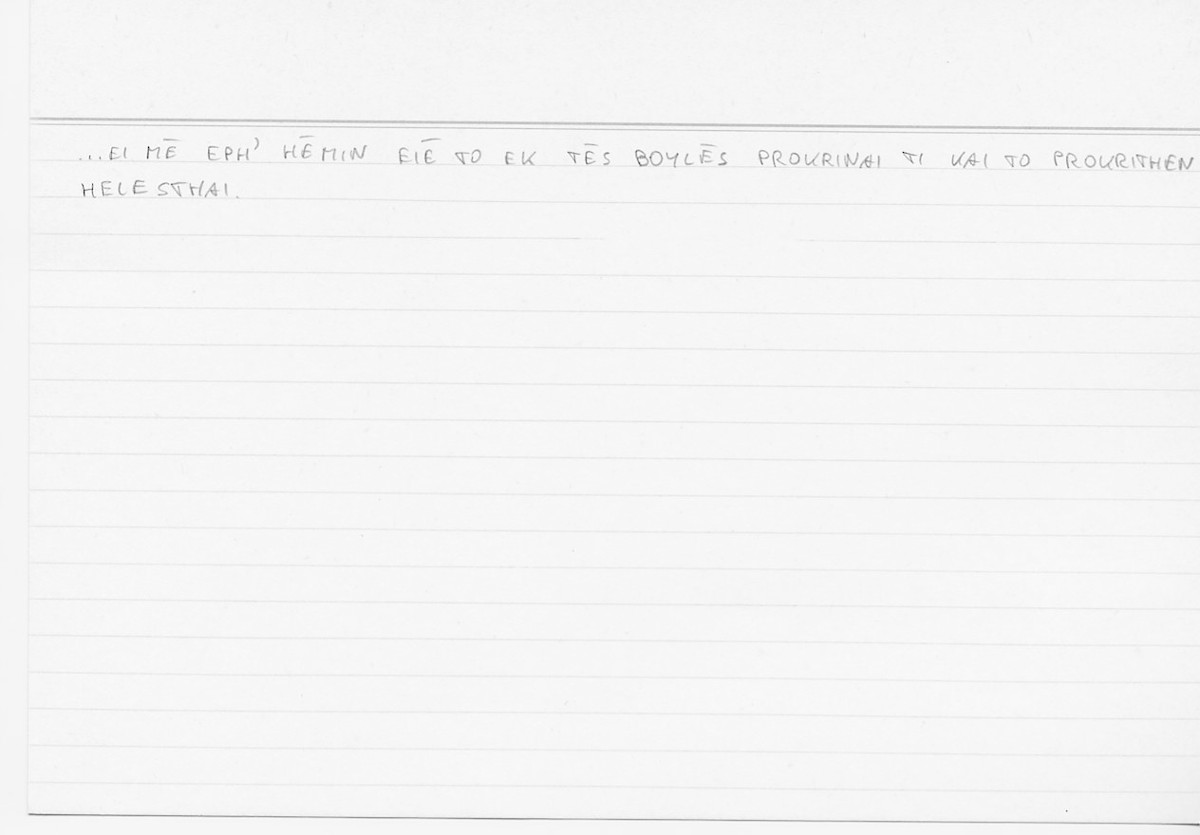 ...EI MĒ EPH' HĒMIN EIĒ TO EK TĒS BOYLĒS PROKRINAI TI KAI TO PROKRITHEN
HELESTHAI.